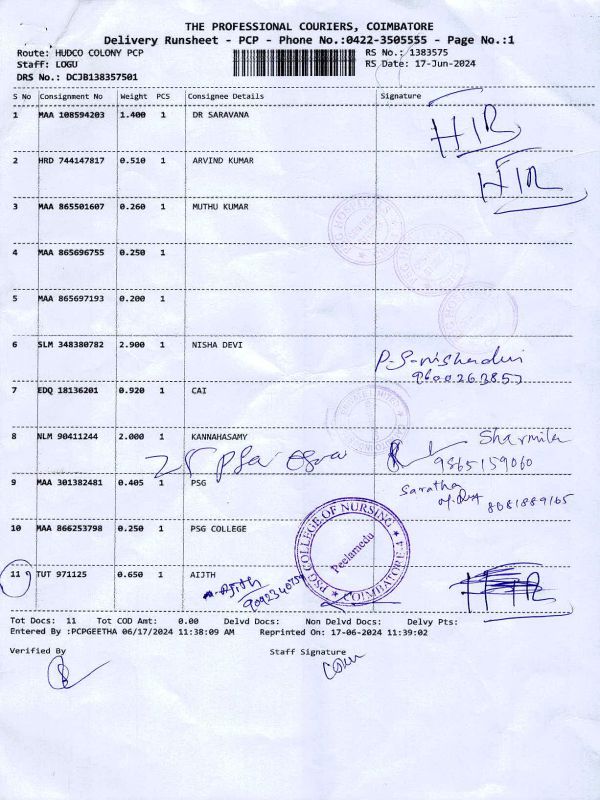 THE PROFESSIONAL COURIERS, COIMBATORE
Delivery Runsheet - PCP - Phone No.:0422-3505555 - Page No.:1
Route: HUDCO COLONY PCP RS No.: 1383575
Staff: LOGU RS Date: 17-Jun-2024
DRS No.: DCJB138357501
S No Consignment No Weight PCS Consignee Details Signature
1 MAA 108594203 1.400 1 DR SARAVANA
2 HRD 744147817 0.510 1 ARVIND KUMAR
3 MAA 865501607 0.260 1 MUTHU KUMAR
4 MAA 865696755 0.250 1
5 MAA 865697193 0.200 1
6 SLM 348380782 2.900 1 NISHA DEVI
7 EDQ 18136201 0.920 1 CAI
8 NLM 90411244 2.000 1 KANNAHASAMY Sharmila
9865159060
9 MAA 301382481 0.405 1 PSG Saratha
8081889165
10 MAA 866253798 0.250 1 PSG COLLEGE
PSG COLLEGE OF NURSING
Peelamedu
COIMBATORE-4
11 TUT 971125 0.650 1 AIJTH Ajith
Tot Docs: 11 Tot COD Amt: 0.00 Delvd Docs: Non Delvd Docs: Delvy Pts:
Entered By :PCPGEETHA 06/17/2024 11:38:09 AM Reprinted On: 17-06-2024 11:39:02
Verified By Staff Signature